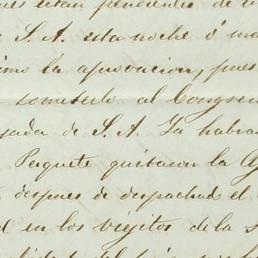 están pendientes de
S. A. esta noche ó ma
la aprovacion, pues
someterlo al Congre
gada de S. A. Ya habra
Paquete quitaron la
despues de despachad el
en los viejitos de la s